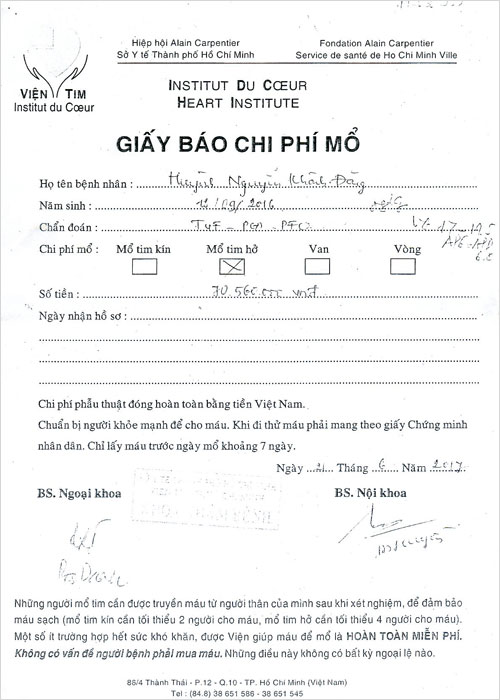 Hiệp hội Alain Carpentier
Sở Y tế Thành phố Hồ Chí Minh
Fondation Alain Carpentier
Service de santé de Ho Chi Minh Ville
VIỆN TIM
Institut du Cœur
INSTITUT DU CŒUR
HEART INSTITUTE
GIẤY BÁO CHI PHÍ MỔ
Họ tên bệnh nhân : Huỳnh Nguyễn Khánh Đăng
Năm sinh : 12/09/2016
Chẩn đoán : T4F - PCA - PFO
Chi phí mổ : Mổ tim kín Mổ tim hở Van Vòng
Số tiền : 70.560.000 vnđ
Ngày nhận hồ sơ :
Chi phí phẫu thuật đóng hoàn toàn bằng tiền Việt Nam.
Chuẩn bị người khỏe mạnh để cho máu. Khi đi thử máu phải mang theo giấy Chứng minh
nhân dân. Chỉ lấy máu trước ngày mổ khoảng 7 ngày.
Ngày 21 Tháng 6 Năm 2017
BS. Ngoại khoa
BS. Nội khoa
Những người mổ tim cần được truyền máu từ người thân của mình sau khi xét nghiệm, để đảm bảo
máu sạch (mổ tim kín cần tối thiểu 2 người cho máu, mổ tim hở cần tối thiểu 4 người cho máu).
Một số ít trường hợp hết sức khó khăn, được Viện giúp máu để mổ là HOÀN TOÀN MIỄN PHÍ.
Không có vấn đề người bệnh phải mua máu. Những điều này không có bất kỳ ngoại lệ nào.
88/4 Thành Thái - P.12 - Q.10 - TP. Hồ Chí Minh (Việt Nam)
Tel : (84.8) 38 651 586 - 38 651 545